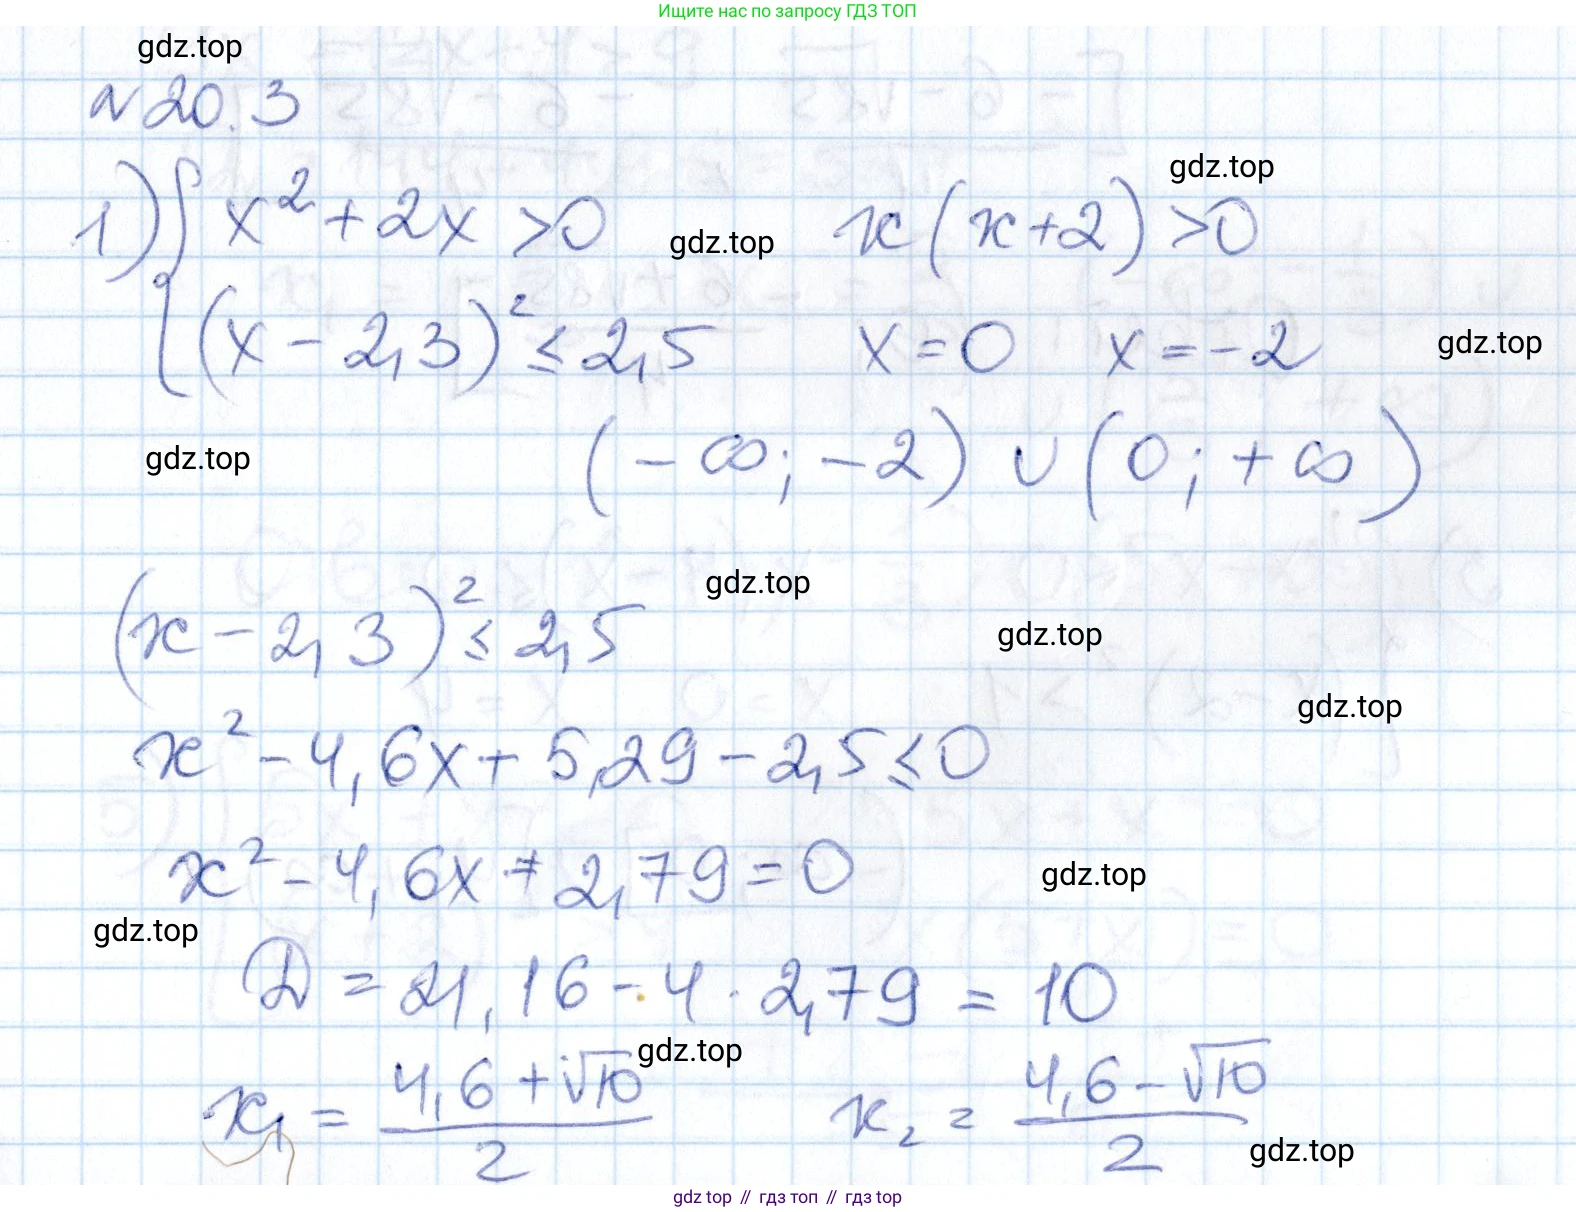 Ищите нас по запросу ГДЗ ТОП
gdz.top
№ 20.3
gdz.top
1) { x² + 2x > 0    x(x+2) > 0
gdz.top
(x – 2,3)² ≤ 2,5    x = 0    x = –2
gdz.top
gdz.top
(–∞; –2) ∪ (0; +∞)
gdz.top
(x – 2,3)² ≤ 2,5
gdz.top
gdz.top
x² – 4,6x + 5,29 – 2,5 ≤ 0
x² – 4,6x + 2,79 = 0
gdz.top
gdz.top
D = 21,16 – 4 · 2,79 = 10
gdz.top
x₁ = (4,6 + √10)/2    x₂ = (4,6 – √10)/2
gdz.top
gdz top // гдз топ // гдз top